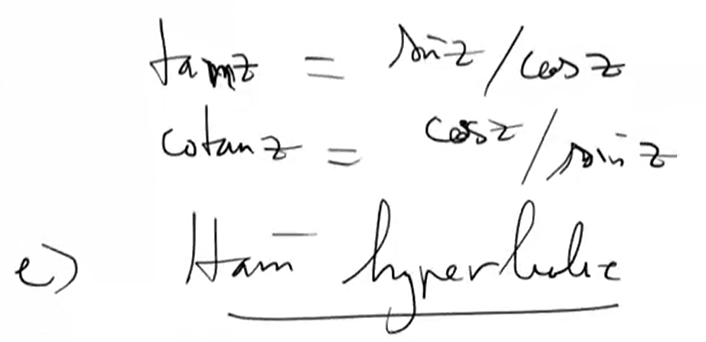 tanz = sinz/cosz
cotanz = cosz/sinz
e) Ham hyperbolic